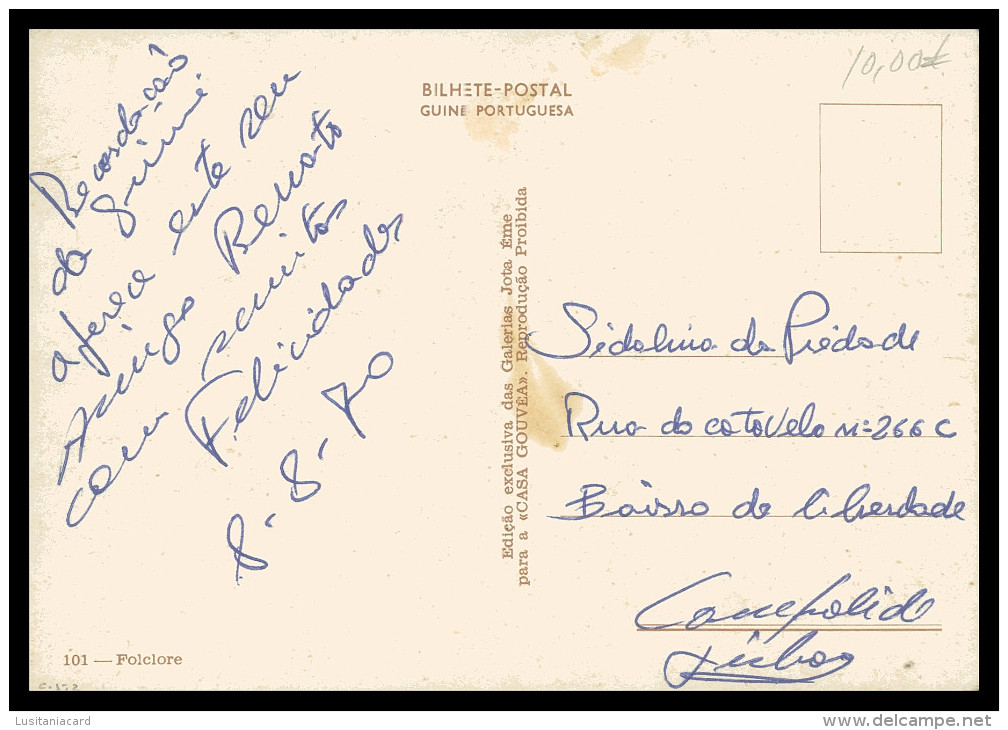 Recordação
da Guiné
oferece este seu
Amigo Renato
com muitas
Felicidades
8-8-70
BILHETE-POSTAL
GUINÉ PORTUGUESA
10,00€
Edição exclusiva das Galerias Jota Éme
para a «CASA GOUVEA». Reprodução Proibida
Sidalina da Piedade
Rua do catovelo nº 266 C
Bairro da liberdade
Campolide
Lisboa
101 — Folclore
Lusitaniacard
www.delcampe.net